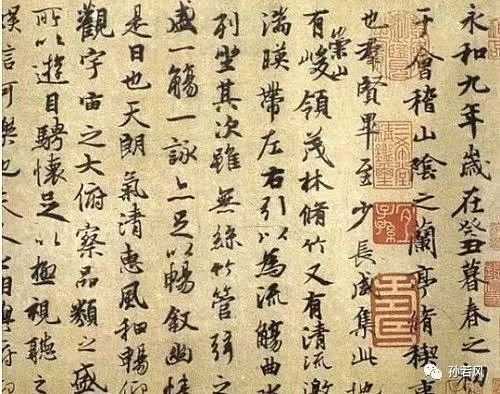 永和九年歲在癸丑暮春之初
于會稽山陰之蘭亭脩稧事
也羣賢畢至少長咸集此地
有崇山峻領茂林脩竹又有清流激
湍暎帶左右引以為流觴曲水
列坐其次雖無絲竹管弦之
盛一觴一詠亦足以暢敘幽情
是日也天朗氣清惠風和暢仰
觀宇宙之大俯察品類之盛
所以遊目騁懷足以極視聽之
娛信可樂也夫人之相與俯仰
三希堂精鑑璽
宜子孫
孙若风